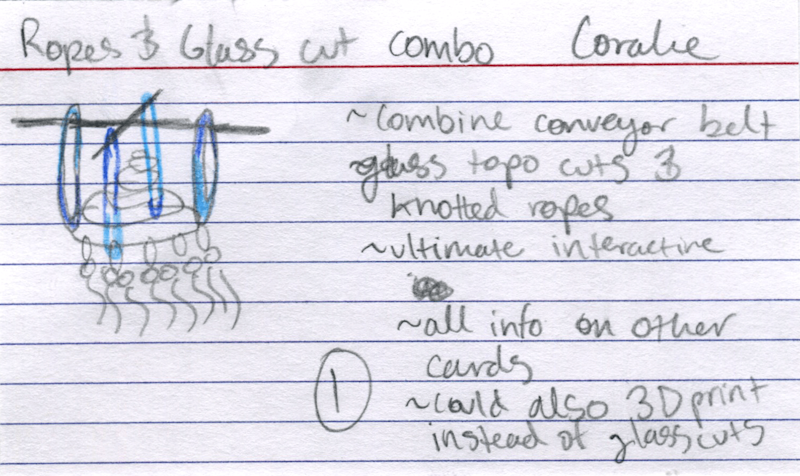 Ropes & Glass cut combo Coralie
~combine conveyor belt
~glass topo cuts &
knotted ropes
~ultimate interactive
~all info on other
cards
1
~could also 3D print
instead of glass cuts